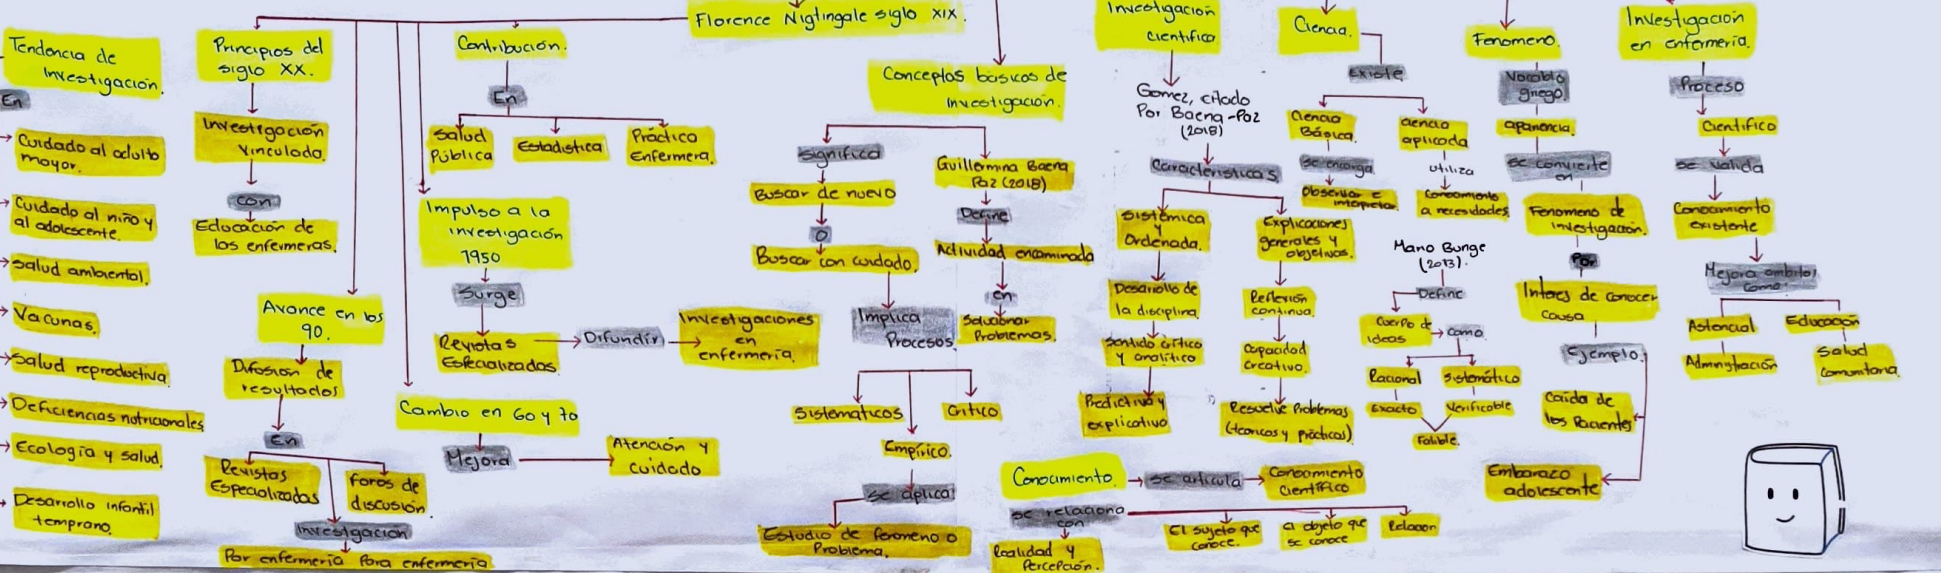 Tendencia de
Investigación.
En
Cuidado al adulto
mayor.
Cuidado al niño y
al adolescente.
Salud ambiental.
Vacunas.
Salud reproductiva.
Deficiencias nutricionales
Ecología y salud.
Desarrollo infantil
temprano.
Florence Nigtingale siglo XIX.
Principios del
siglo XX.
Investigación
vinculada.
con
Educación de
los enfermeras.
Avance en los
90.
Difusión de
resultados
En
Revistas
Especializadas
Foros de
discusión.
Investgación
Por enfermería Para enfermería
Contribución.
En
Salud
Pública
Estadistica
Práctica
Enfermera.
Impulso a la
investigación
1950
Surge
Revistas
Especializadas.
Difundir
Investigaciones
en
enfermería.
Cambio en 60 y 70
Mejora
Atención y
cuidado
Conceptos basicos de
Investigación.
significa
Buscar de nuevo
O
Buscar con cuidado.
Implica
Procesos.
Sistematicos
Empírico.
Critico
se aplica
Estudio de fenomeno o
Problema.
Guillermina Baena
Paz (2018)
Define
Actividad encaminada
en
Solucionar
Problemas.
Investigación
científica.
Gomez, citado
Por Baena-Paz
(2018)
Caracteristicas
Sistémica
y
Ordenada.
Desarrollo de
la disciplina.
Sentido crítico
y analítico
Predictivo y
explicativo
Explicaciones
generales y
objetivos.
Reflexión
continua.
Capacidad
Creativo.
Resuelve Problemas
(teoricos y prácticos).
Conocimiento
se articula
Conocimiento
Científico
se relaciona
con
Realidad y
Percepción.
El sujeto que
conoce.
El objeto que
se conoce
Relacion
Ciencia.
Existe
Ciencia
Básica.
se encarga
Observar e
interpretar.
ciencia
aplicada
utiliza
Conocimiento
a necesidades.
Mario Bunge
(2013).
Define
Cuerpo de
ideas
como
Racional
Sistemático
Exacto
Verificable
Falible.
Fenomeno.
Vocablo
griego.
apariencia.
se convierte
en
Fenomeno de
investigación.
Por
Interes de conocer
causa
Ejemplo.
Caida de
los Pacientes
Embarazo
adolescente
Investigación
en enfermería.
Proceso
Cientifico
se valida
Conocimiento
existente
Mejora ambitos
como
Asistencial
Educación
Administración
Salud
Comunitaria.